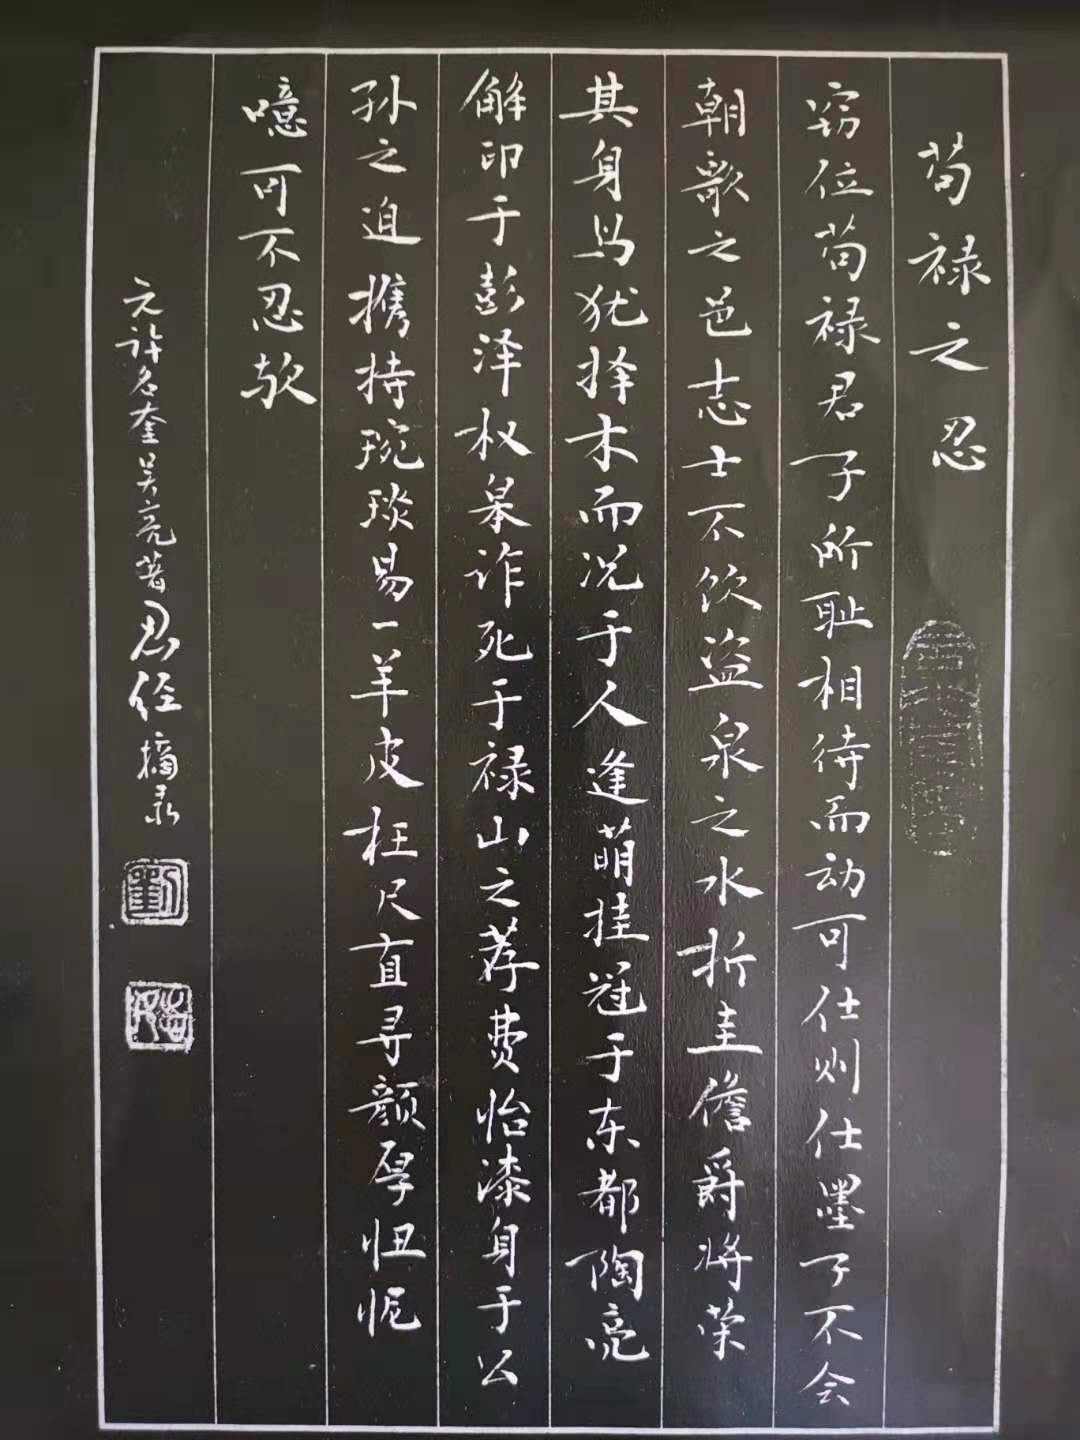 苟禄之忍
窃位苟禄君子所耻相待而动可仕则仕墨子不会
朝歌之邑志士不饮盗泉之水折圭儋爵将荣
其身鸟犹择木而况于人逢萌挂冠于东都陶亮
解印于彭泽权皋诈死于禄山之荐费怡漆身于公
孙之迫携持琬琰易一羊皮枉尺直寻颜厚忸怩
噫可不忍欤
元许名奎吴亮著忍经摘录
劉